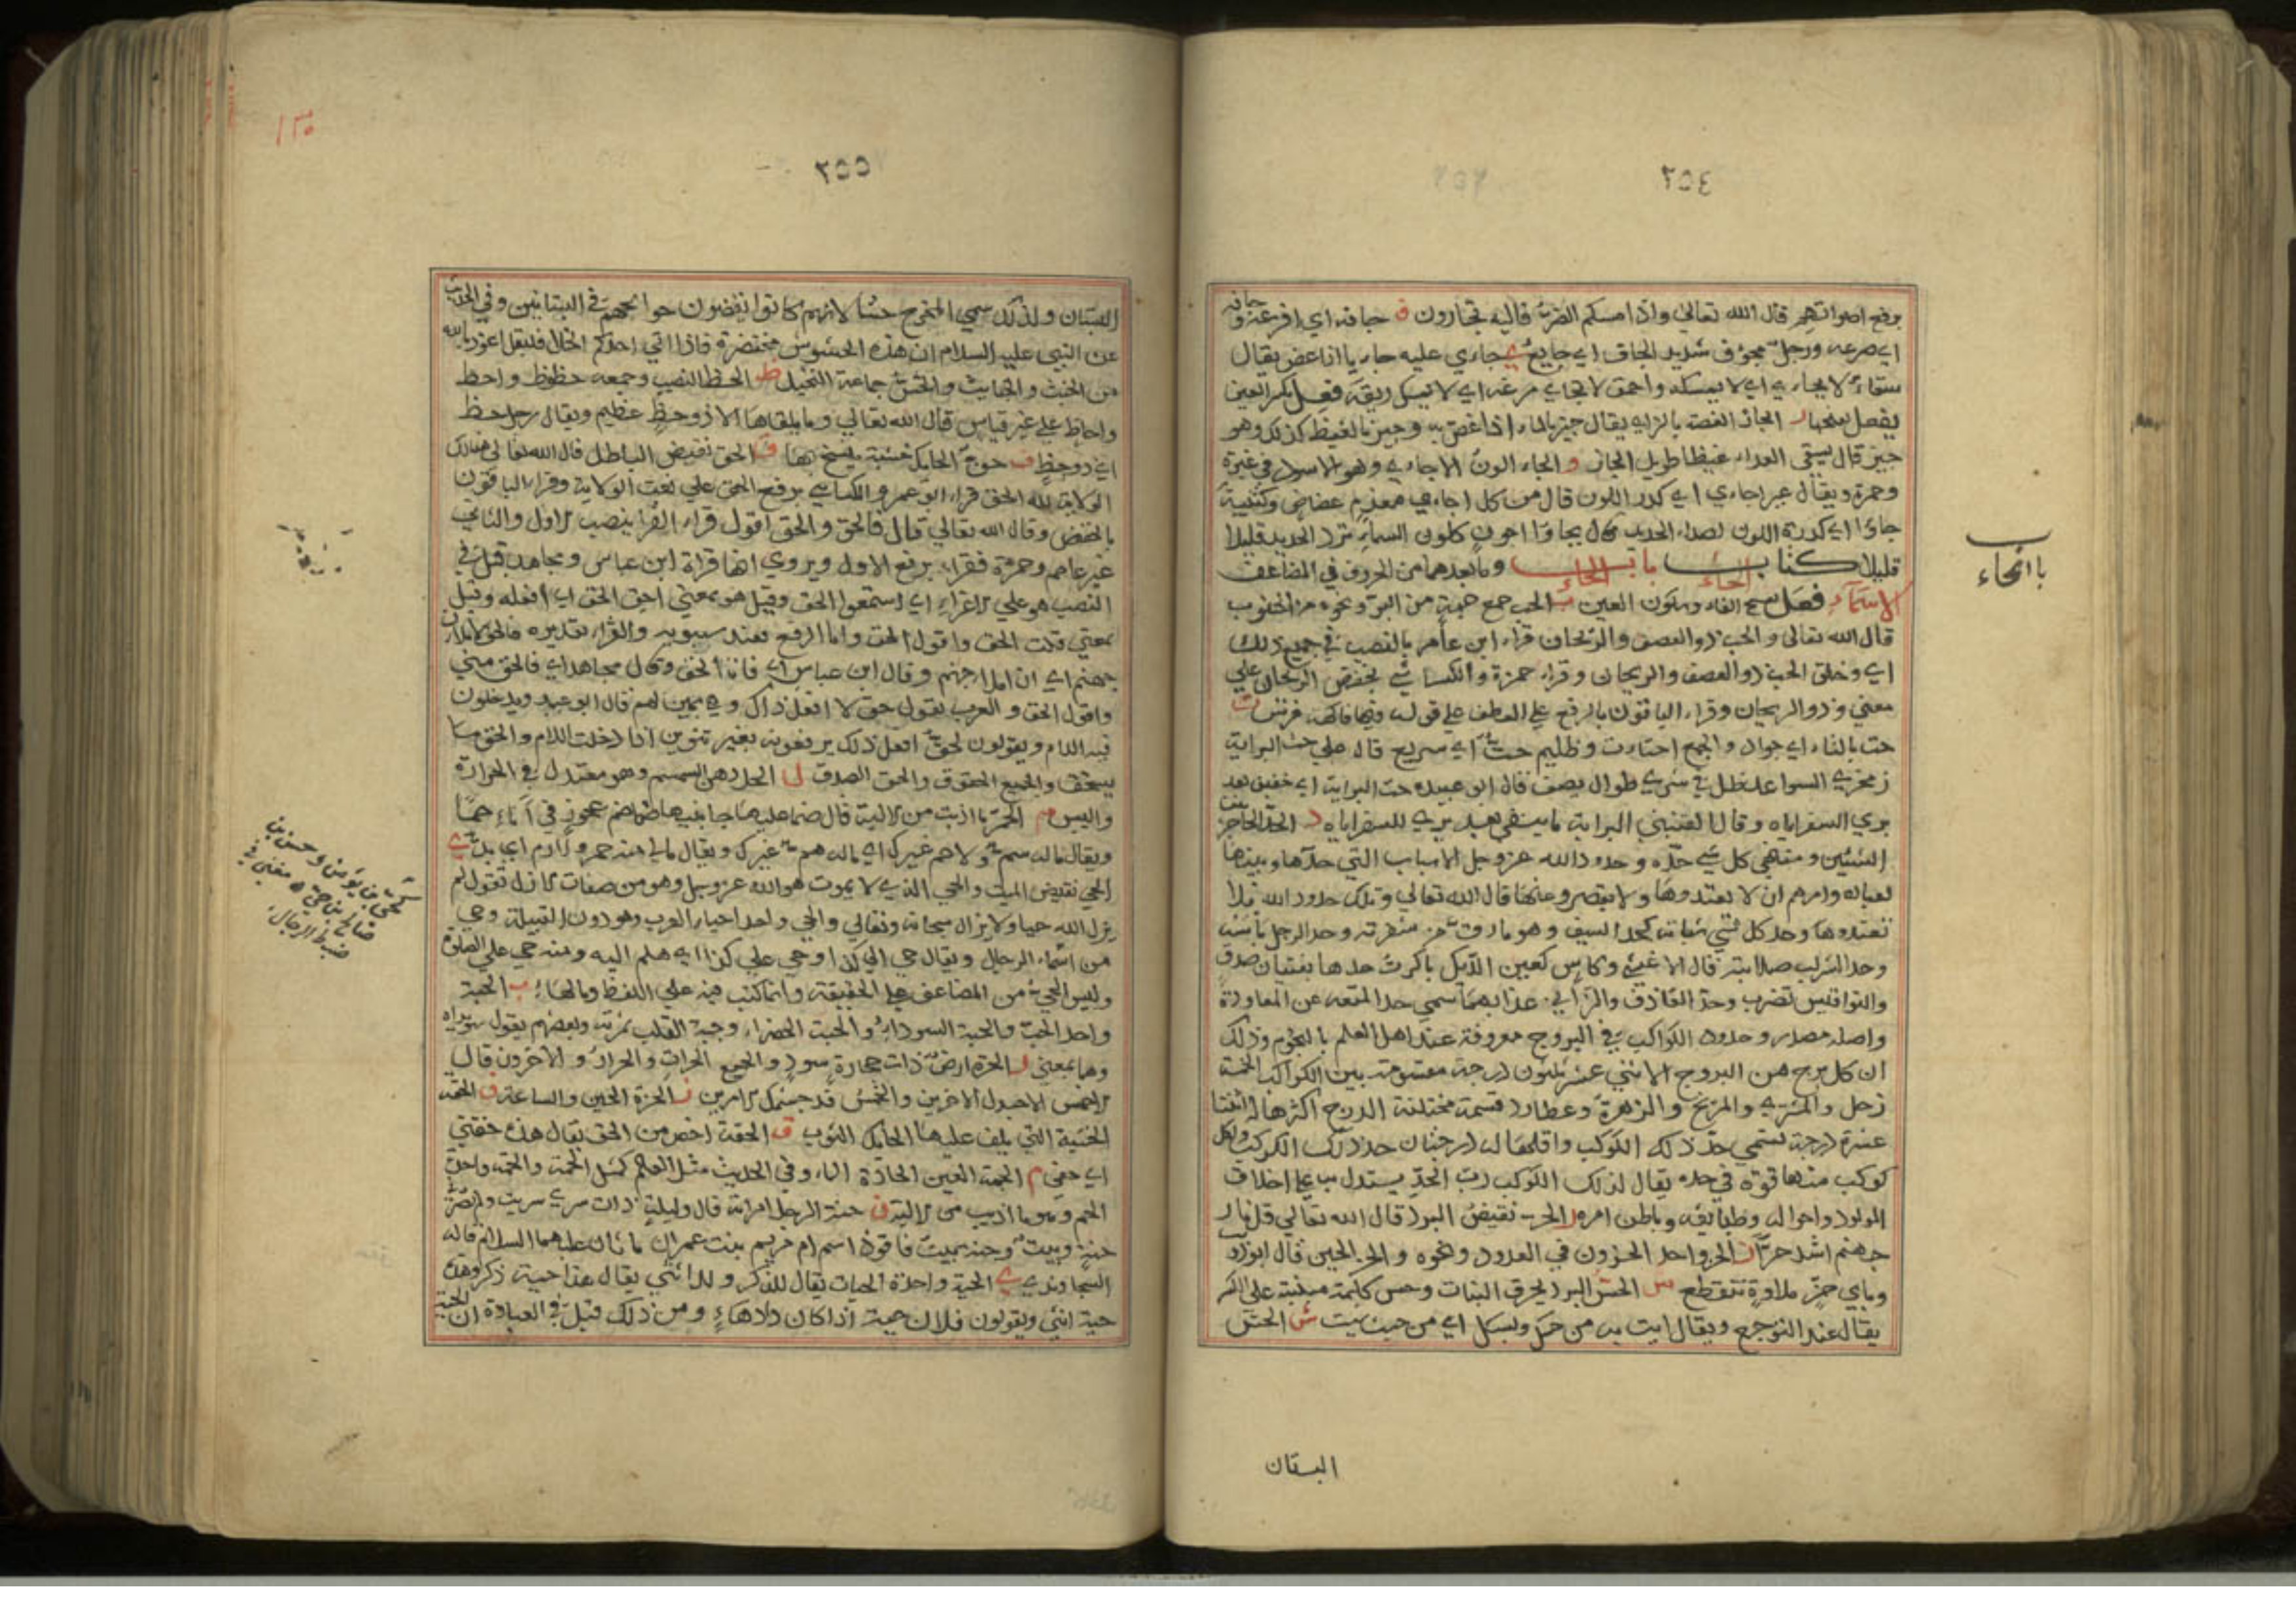 ٢٥٤
برفع اصواتهم قال الله تعالى واذا مسكم الضر فاليه تجارون ف جافه اي افزعه وجافه
اي صرعه ورجل مجوف شديد الجاف اي جايع ي جاري عليه جايا اذا عض يقال
سقاء لا يجاي اي لا يمسك واحمق لا يجاي مرغه اي لا يمسك ريقه فعل بكسر العين
يفعل بفتحها ز الجاز الغصة بالزاي يقال جيز بالماء اذا غص به وجيز بالغيظ كذلك وهو
جيز قال يسقي العداء غيظا طويل الجاز و الجاء الون الاجاي وهو الاسود في غبرة
وحمرة ويقال عير اجاي اي كدر اللون قال من كل اجاي معذم عضاض وكتيبة
جاوا اي كدرة اللون لصداء الحديد قال بجاوا جون كلون السماء ترد الحديد قليلا
قليلا كتاب الحاء باب الحاء وما بعدها من الحروف في المضاعف
الاسماء فعل بفتح الفاء وسكون العين ب الحب جمع حبة من البر ونحوه من الحبوب
قال الله تعالى والحب ذو العصف والريحان قراء ابن عامر بالنصب في جميع ذلك
اي وخلق الحب ذو العصف والريحان وقراء حمزة والكسائي بخفض الريحان على
معنى وذو الريحان وقراء الباقون بالرفع على العطف على قوله فيها فاكهة فرس ت
حت بالتاء اي جواد والجمع احتات وظليم حت اي سريع قال على حت البراية
زمخري السواعد ظل في شري طوال يصف قال ابو عبيدة حت البراية اي خفيف بعد
بري السفر اياه وقال القتيبي البراية ما يبقى بعد بري السفر اياه د الحد الحاجز بين
الشيئين ومنتهى كل شي حده وحدود الله عز وجل الاسباب التي حدها وبينها
لعباده وامرهم ان لا يعتدوها ولا يقصروا عنها قال الله تعالى وتلك حدود الله فلا
تعتدوها وحد كل شي شباته كحد السيف وهو ما رق من شفرته وحد الرجل باسه
وحد الشراب صلابته قال الاعشى وكاس كعين الديك باكرت حدها بفتيان صدق
والنواقيس تضرب وحد القاذف والزاني عذابهما سمي حدا لمنعه عن المعاودة
واصله مصدر وحدود الكواكب في البروج معروفة عند اهل العلم بالنجوم وذلك
ان كل برج من البروج الاثني عشر ثلثون درجة مقسومة بين الكواكب الخمسة
زحل والمشتري والمريخ والزهرة وعطارد قسمة مختلفة الدرج اكثرها له اثنتا
عشرة درجة تسمى حد ذلك الكوكب واقلها له درجتان حد ذلك الكوكب ولكل
كوكب منها قوة في حده يقال لذلك الكوكب رب الحد يستدل به على اخلاق
المولود واحواله وطبائعه وباطن امره ر الحر نقيض البرد قال الله تعالى قل نار
جهنم اشد حرا ز الحز واحد الحزوز في العود ونحوه والحز الحين قال ابو ذؤيب
وباي حز ملاوة تتقطع س الحس البرد يحرق النبات وحس كلمة مبنية على الكسر
يقال عند التوجع ويقال ايت به من حسك وبسك اي من حيث شيت ش الحش
باب الحاء
البستان
٢٥٥
١٣٥
البستان ولذلك سمي المخرج حشا لانهم كانوا يقضون حوائجهم في البساتين وفي الحديث
عن النبي عليه السلام ان هذه الحشوش محتضرة فاذا اتى احدكم الخلا فليقل اعوذ بالله
من الخبث والخبايث والحش جماعة النخيل ظ الحظ النصيب وجمعه حظوظ واحظ
واحاظ على غير قياس قال الله تعالى وما يلقاها الا ذو حظ عظيم ويقال رجل حظ
اي ذو حظ ف حوف الحايك خشبة ينسج بها ق الحق نقيض الباطل قال الله تعالى هنالك
الولاية لله الحق قراء ابو عمرو والكسائي برفع الحق على نعت الولاية وقراء الباقون
بالخفض وقال الله تعالى قال فالحق والحق اقول قراء القراء بنصب الاول والثاني
غير عاصم وحمزة فقراء برفع الاول ويروى انها قراة ابن عباس ومجاهد قيل في
النصب هو على الاغراء اي استمعوا الحق وقيل هو بمعنى احق الحق اي افعله وقيل
بمعنى قلت الحق واقول الحق واما الرفع فعند سيبويه والفراء تقديره فالحق لاملان
جهنم اي ان املا جهنم وقال ابن عباس اي فانا الحق وقال مجاهد اي فالحق مني
واقول الحق والعرب تقول حق لا افعل ذاك وهي يمين لهم قال ابو عبيد ويدخلون
فيه اللام ويقولون لحق افعل ذلك يرفعونه بغير تنوين اذا دخلت اللام والحق ما
يستحق والجميع الحقوق والحق الصدق ل الحل دهن السمسم وهو معتدل في الحرارة
واليبس م الحم ما اذيب من الالية قال ضما عليها جانبيها ضما ضم عجوز في اناء حما
ويقال ما له سم ولا حم غيرك اي ما له هم غيرك ويقال ما لي منه حم ورم اي بد ي
الحي نقيض الميت والحي الذي لا يموت هو الله عز وجل وهو من صفات الازل تقول لم
يزل الله حيا ولا يزال سبحانه وتعالى والحي واحد احياء العرب وهو دون القبيلة وحي
من اسماء الرجال ويقال حي الى كذا وحي على كذا اي هلم اليه ومنه حي على الصلوة
وليس الحي من المضاعف على الحقيقة وانما كتب هنا على اللفظ وبالهاء ب الحبة
واحد الحب والحبة السوداء والحبة الخضراء وحبة القلب ثمرته وبعضهم يقول سويداه
وهما بمعنى ر الحرة ارض ذات حجارة سود والجمع الحرات والحرار والاحرون قال
لا خمس الا جندل الاحرين والخمس قد جشمنك الامرين ز الحزة الحين والساعة ف الحفة
الخشبة التي يلف عليها الحايك الثوب ق الحقة اخص من الحق يقال هذه حقتي
اي حقي م الحمة العين الحارة الماء وفي الحديث مثل العالم كمثل الحمة والحمة واحدة
الحم وهو ما اذيب من الالية ن حنة الرجل امراته قال وليلة ذات سرى سريت ولم تضرني
حنة وبيت وحنة بميت فاقوذ اسم ام مريم بنت عمران ماثان عليهما السلام قاله
السجاوندي ي الحية واحدة الحيات يقال للذكر والانثى يقال هذا حية ذكر وهذه
حية انثى ويقولون فلان حية اذا كان داهياء ومن ذلك قيل في العبارة ان الحية